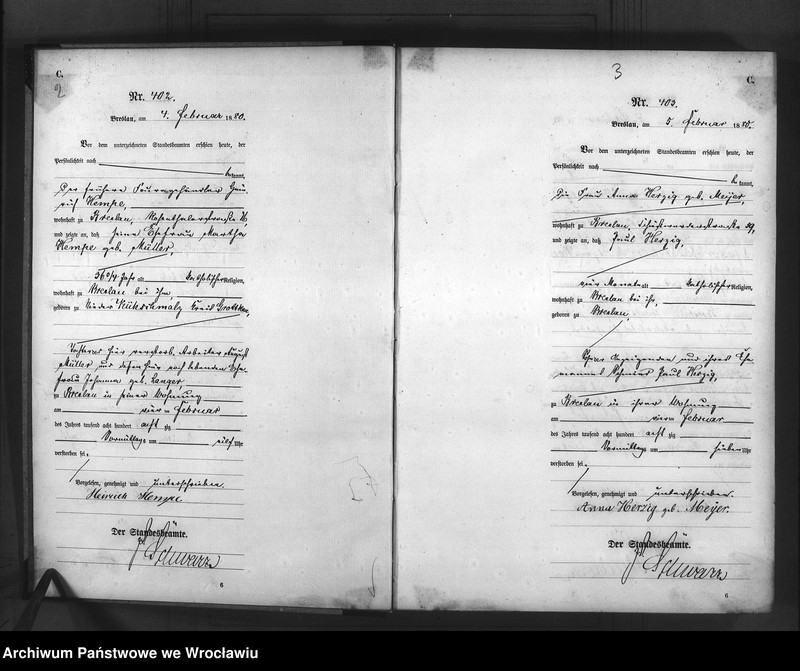 C.
2
Nr. 402.
Breslau, am 4. Februar 1880.
Vor dem unterzeichneten Standesbeamten erschien heute, der
Persönlichkeit nach
bekannt,
Der frühere
Kempe,
wohnhaft zu Breslau,
und zeigte an, daß seine Ehefrau Martha
Kempe geb. Müller,
56 3/4 Jahr alt katholischer Religion,
wohnhaft zu Breslau bei ihm,
geboren zu Nieder Kühschmalz Kreis Grottkau,
Tochter des hier verstorb. Arbeiter August
Müller und dessen hier noch lebenden Ehe-
frau Johanna geb. Langer,
zu Breslau in seiner Wohnung
am vier Februar
des Jahres tausend acht hundert acht zig
Vormittags um elf Uhr
verstorben sei.
Vorgelesen, genehmigt und unterschrieben.
Heinrich Kempe
Der Standesbeamte.
Schwarz
6
3
C.
Nr. 403.
Breslau, am 5. Februar 1880.
Vor dem unterzeichneten Standesbeamten erschien heute, der
Persönlichkeit nach
bekannt,
Die Frau Anna Herzig geb. Meyer,
wohnhaft zu Breslau,
und zeigte an, daß Paul Herzig,
vier Monate alt katholischer Religion,
wohnhaft zu Breslau bei ihr,
geboren zu Breslau,
Sohn der Anzeigenden und ihres Ehe-
mannes Paul Herzig,
zu Breslau in ihrer Wohnung
am vier Februar
des Jahres tausend acht hundert acht zig
Vormittags um sieben Uhr
verstorben sei.
Vorgelesen, genehmigt und unterschrieben.
Anna Herzig geb. Meyer.
Der Standesbeamte.
Schwarz
6
Archiwum Państwowe we Wrocławiu